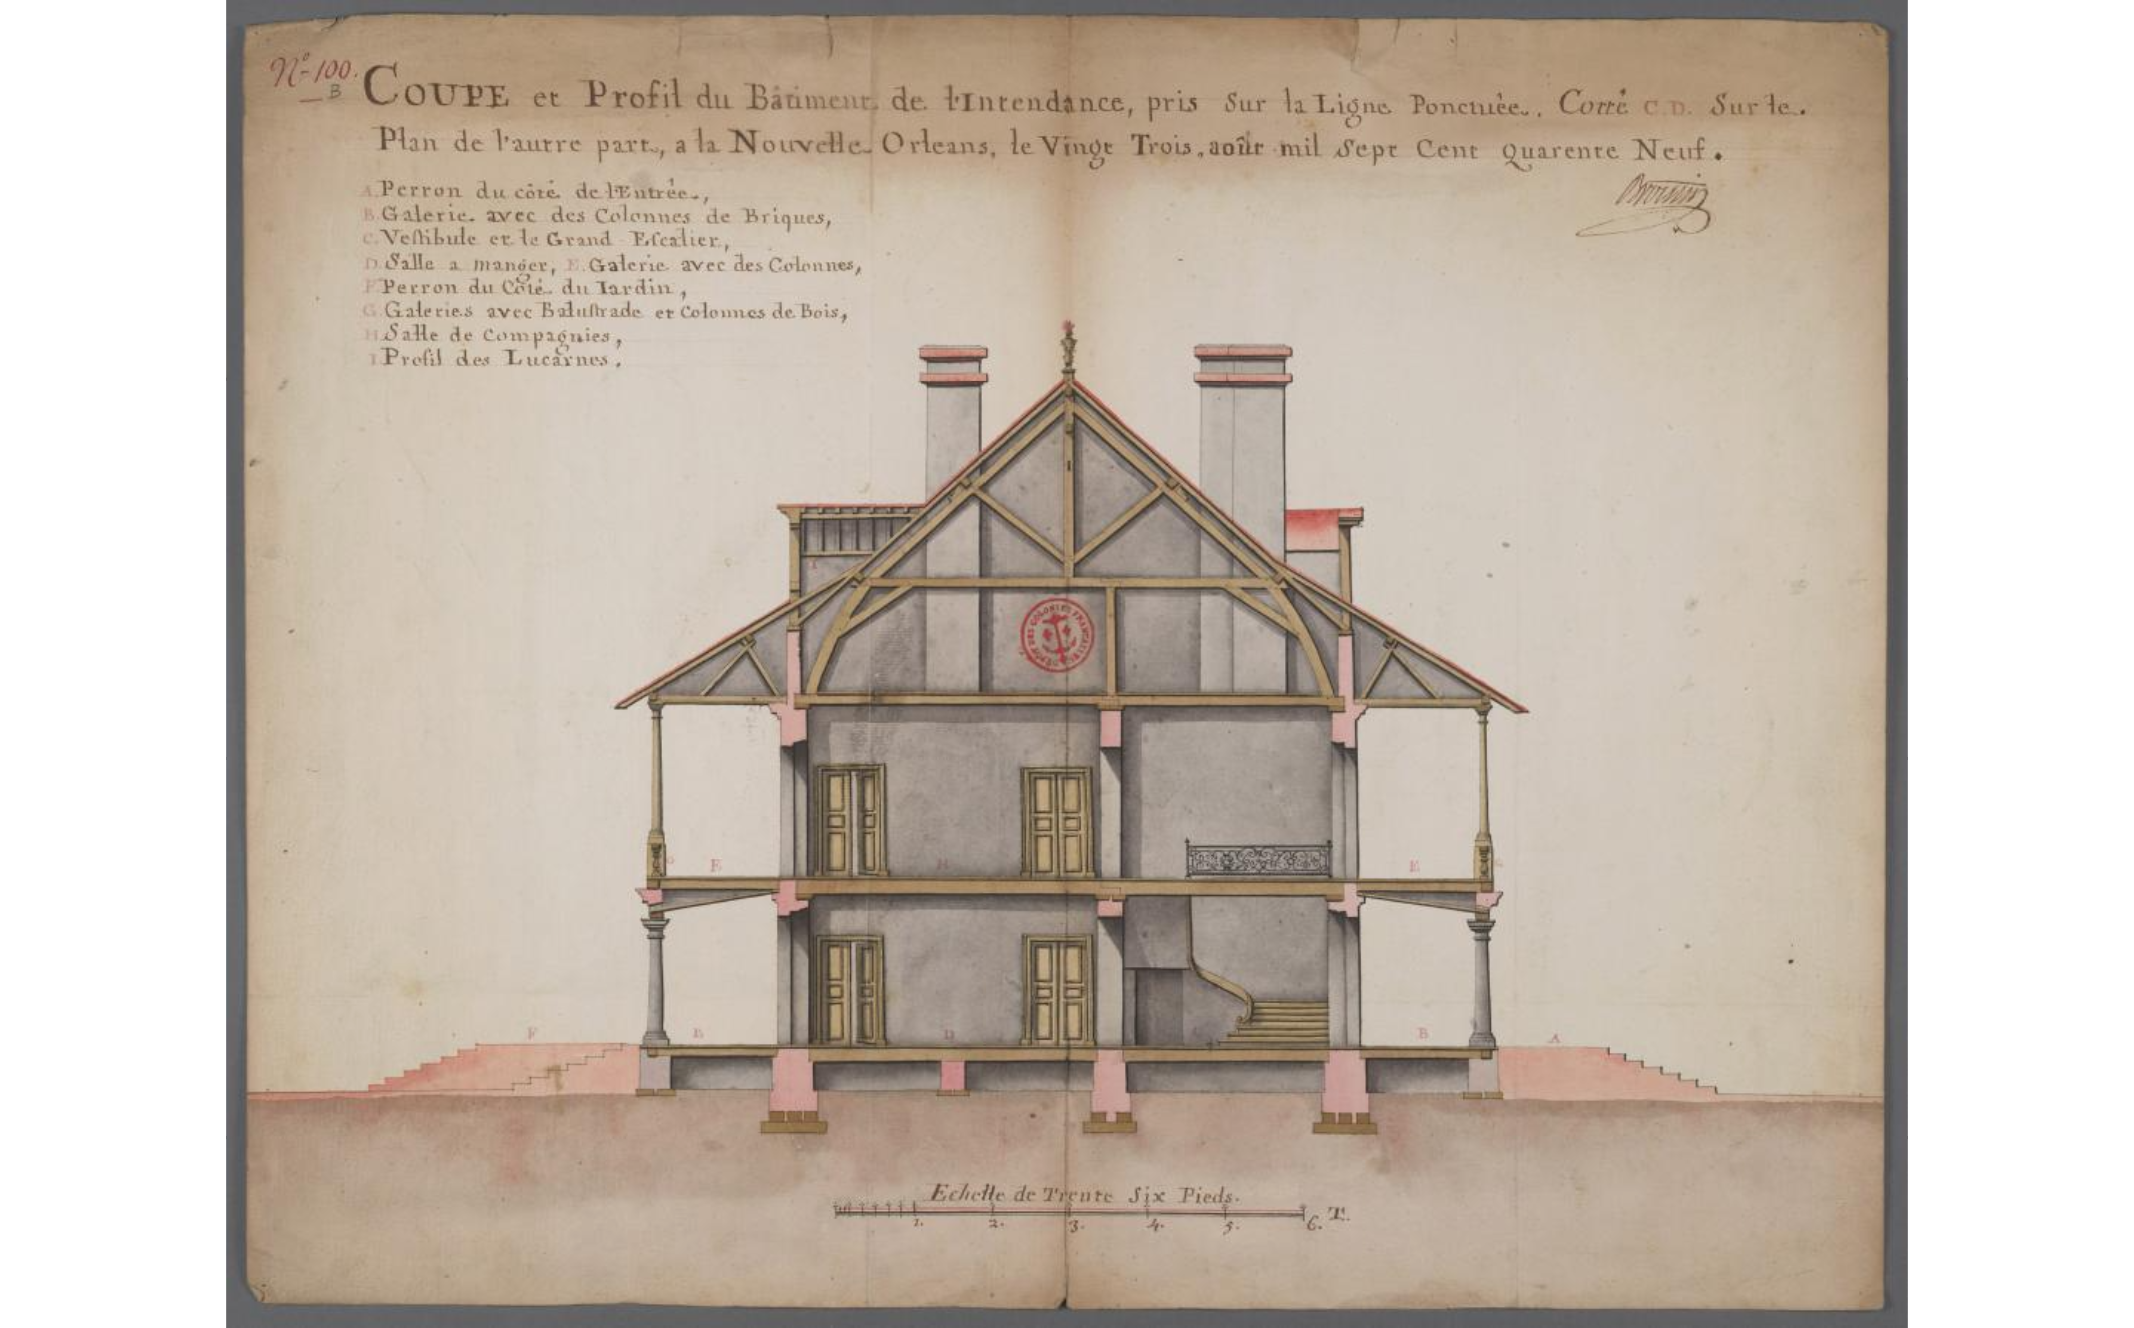 Nº 100.
B
COUPE et Profil du Bâtiment de l'Intendance, pris Sur la Ligne Ponctuée. Cotté C.D. Sur le.
Plan de l'autre part, a la Nouvelle Orleans, le Vingt Trois, août mil Sept Cent quarente Neuf.
Broutin
A. Perron du côté de l'Entrée,
B. Galerie avec des Colonnes de Briques,
C. Veſtibule et le Grand Eſcalier,
D. Salle a manger, E. Galerie avec des Colonnes,
F. Perron du Côté du Iardin,
G. Galeries avec Baluſtrade et Colonnes de Bois,
H. Salle de Compagnies,
I. Profil des Lucarnes.
I
DES COLONIES FRANÇAISES
G E H E G
F B D C B A
Echelle de Trente Six Pieds.
1. 2. 3. 4. 5. 6. T.